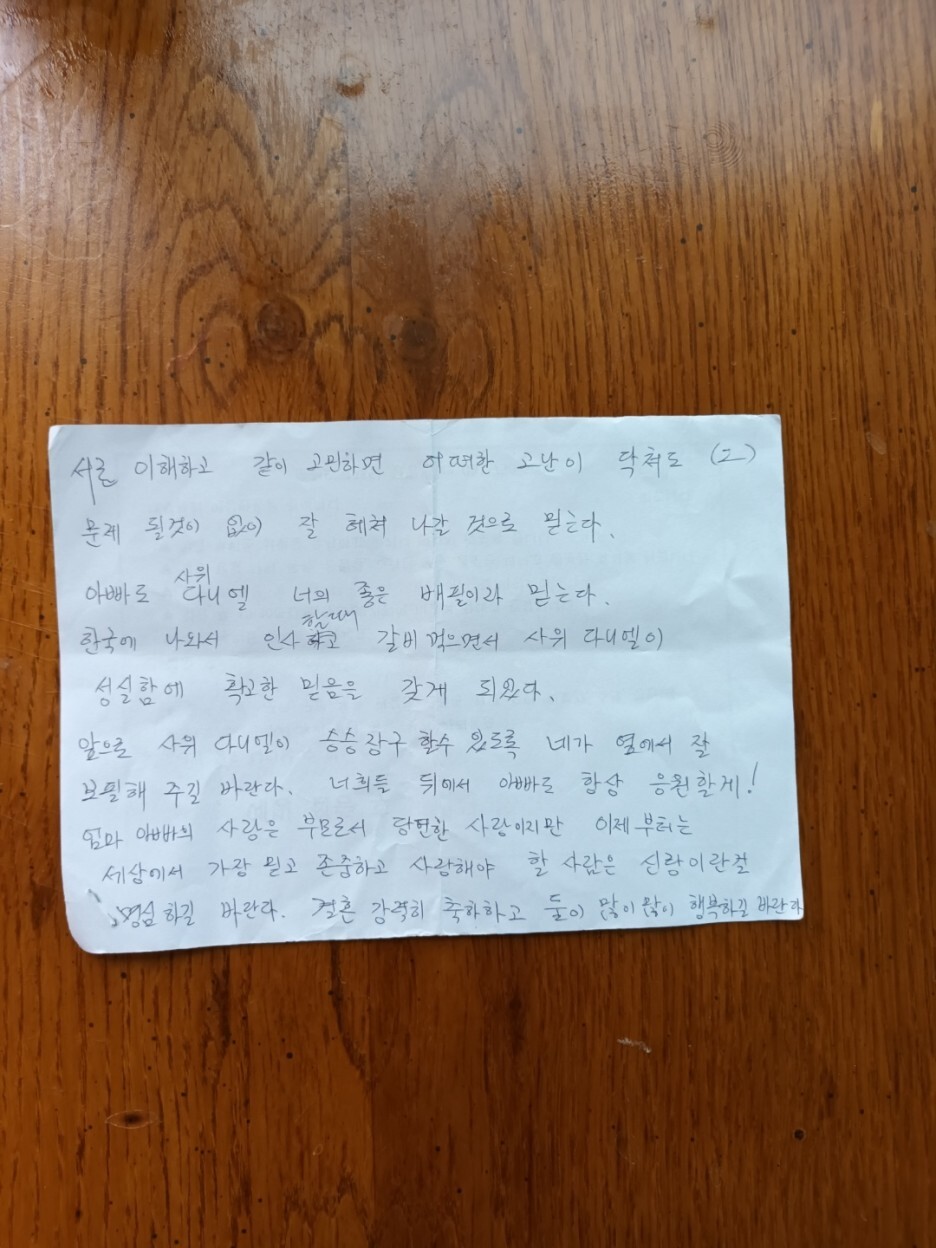 서로 이해하고 같이 고민하면 어떠한 고난이 닥쳐도 (2)
문제 될것이 없이 잘 헤쳐 나갈 것으로 믿는다.
사위
아빠도 다니엘 너의 좋은 배필이라 믿는다.
할때
한국에 나와서 인사 하고 갈비 먹으면서 사위 다니엘이
성실함에 확고한 믿음을 갖게 되었다.
앞으로 사위 다니엘이 승승장구 할수 있도록 네가 옆에서 잘
보필해 주길 바란다. 너희들 뒤에서 아빠도 항상 응원할게!
엄마 아빠의 사랑은 부모로서 당연한 사랑이지만 이제부터는
세상에서 가장 믿고 존중하고 사랑해야 할 사람은 신랑이란걸
명심하길 바란다. 결혼 강력히 축하하고 둘이 많이많이 행복하길 바란다